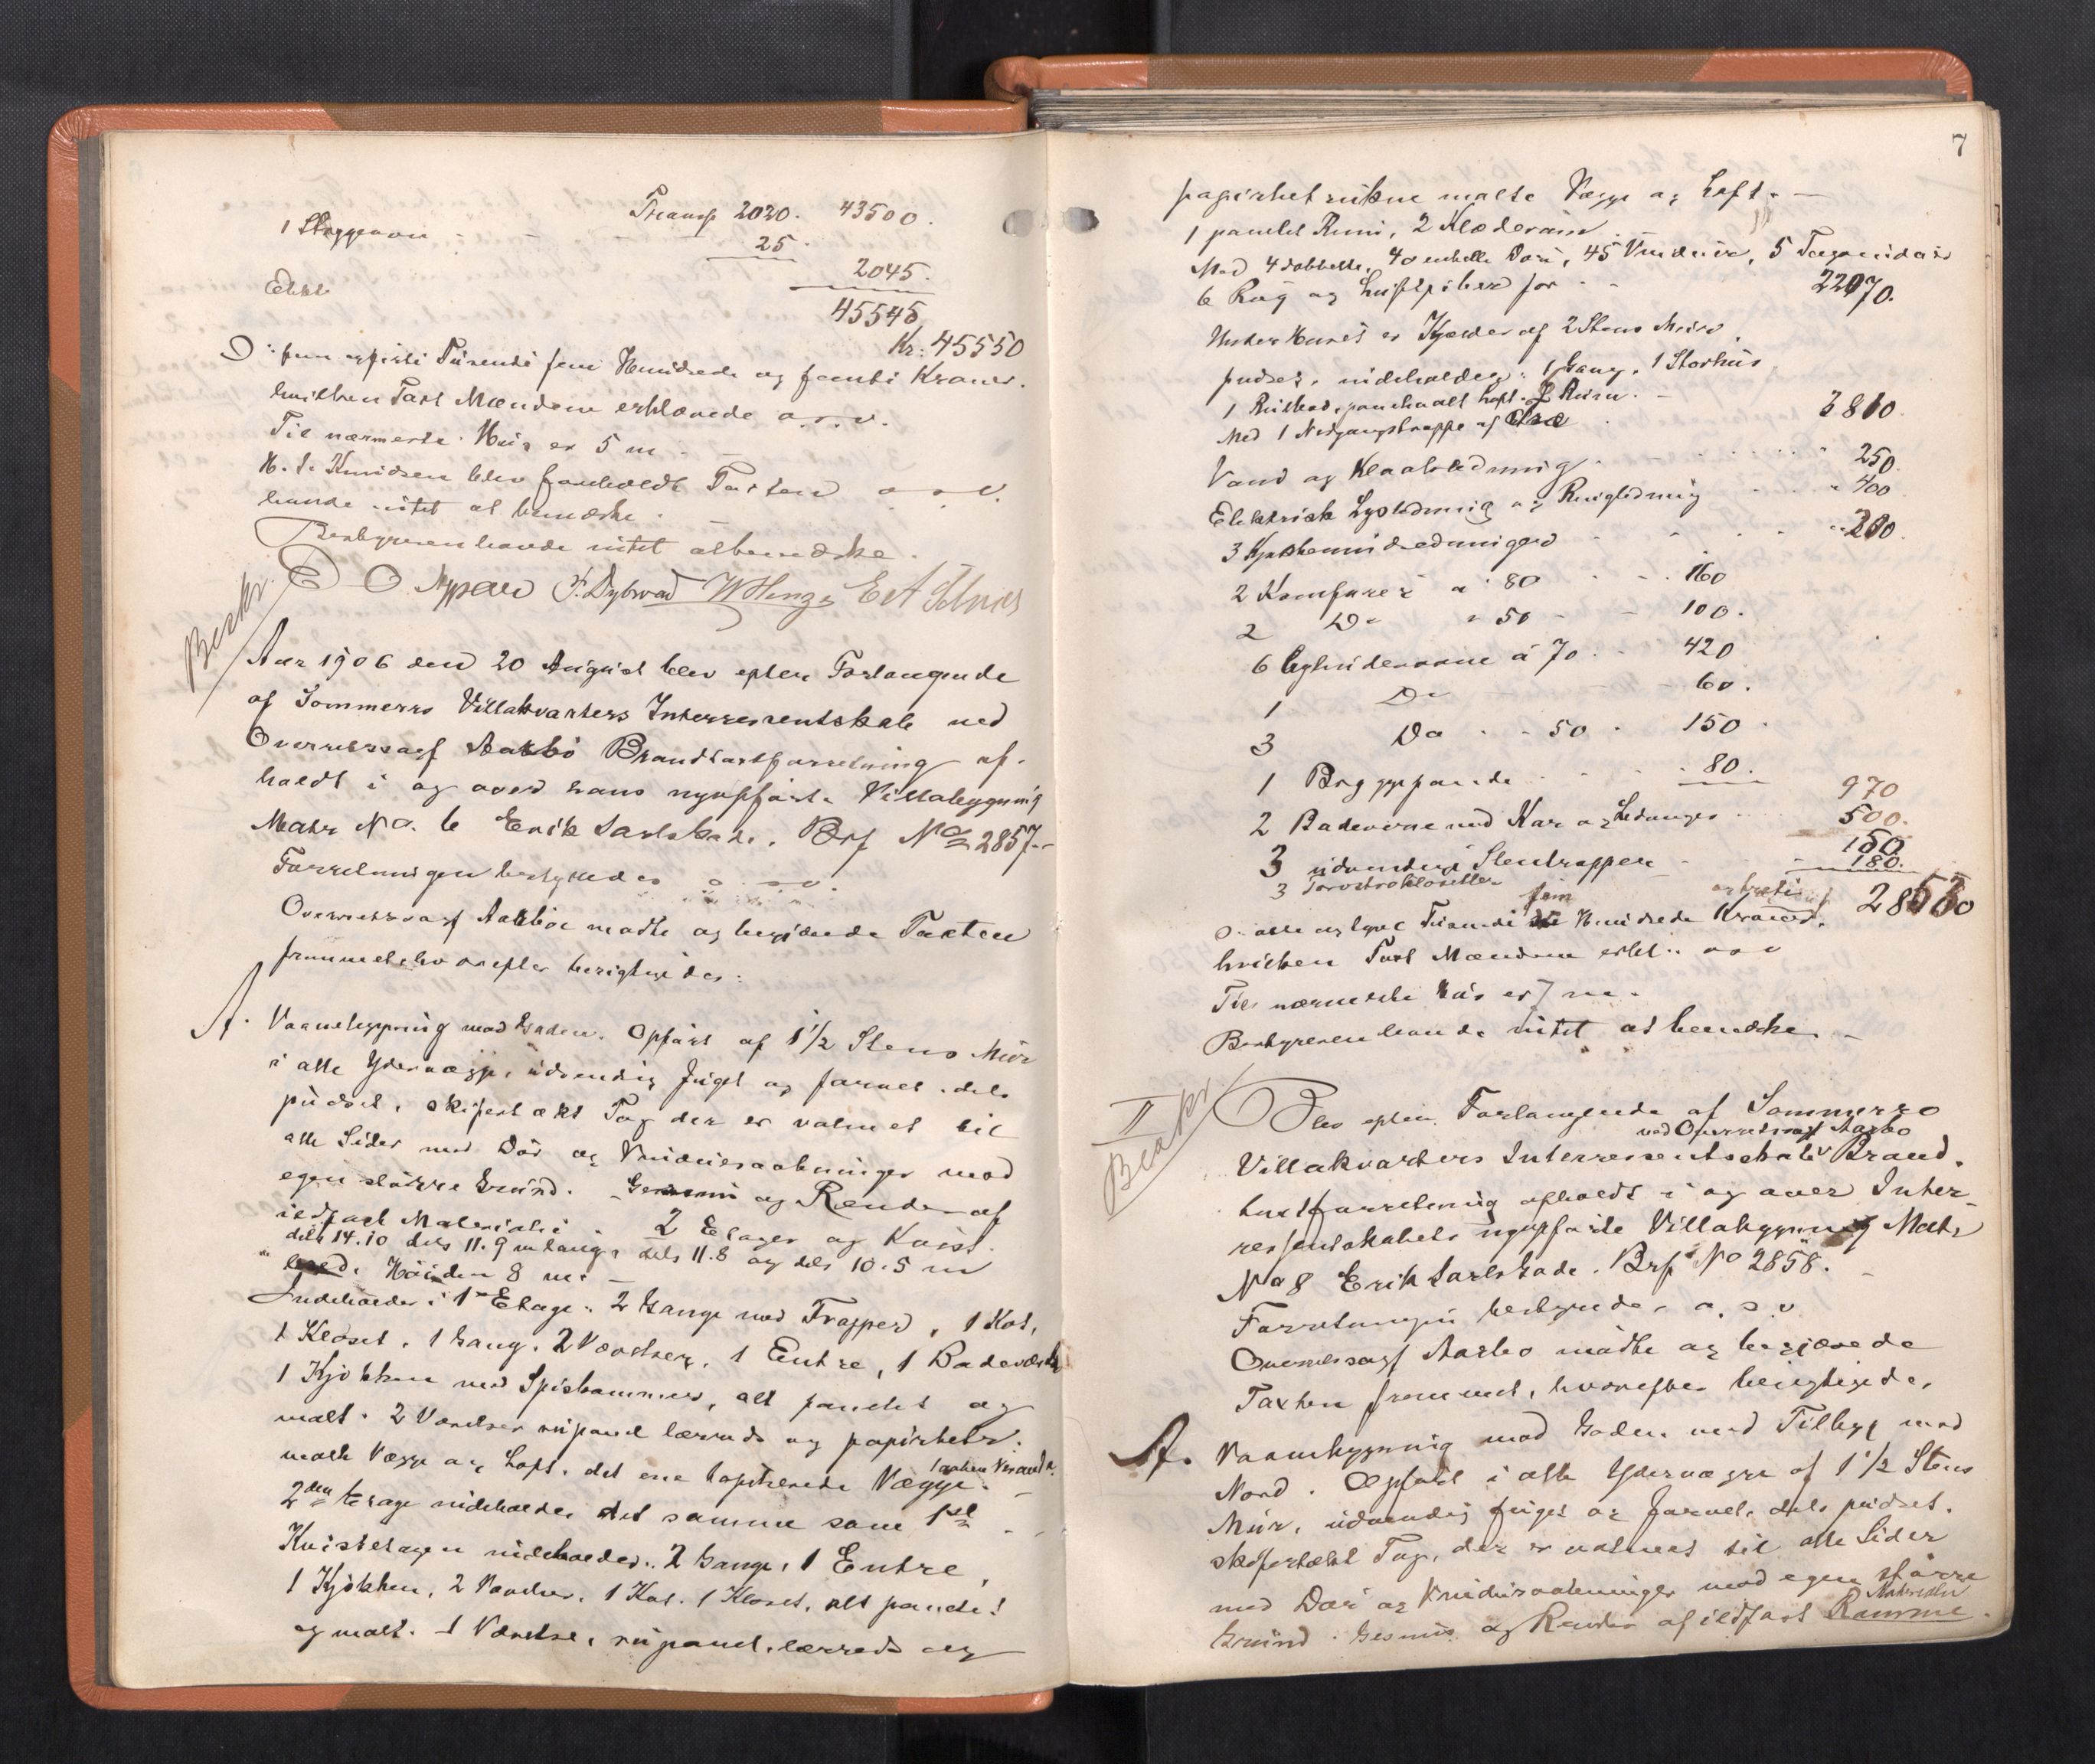 Transp 2020. 43500.
1 Stryggeovn 25.
2045.
45545
Kr: 45550
fem og firti Tusende fem Hundrede og femti Kroner.
hvilken Taxt Mændene erklærede o.s.v.
Til nærmeste Hus er 5 m
H. Knudsen blev foreholdt Taxten o.s.v.
havde intet at bemærke.
Bestyreren havde intet at bemærke.
F. Dybwad
Beskr.
Aar 1906 den 20 August blev efter Forlangende
af Sommerro Villakvarters Interessentskab ved
Overretssagf Aarbo Brandtaxtforretning af-
holdt i og over hans nyopførte Villabygning
Matr No. 6 Erik Jarls Gade. Brf No 2857.
Forretningen bestyredes o.s.v.
Overretssagf Aarbo mødte og begjærede Taxten
fremmet, hvorefter besigtigedes:
A. Vaanebygning mod Gaden. Opført af 1 1/2 Stens Mur
i alle Ydervægge, udvendig fuget og farvet, dels
pudset, skifertækt Tag der er valmet til
alle Sider med Dør og Vinduesaabninger mod
egen større Grund. Gesims og Render af
ildfast Materiale. 2 Etager og Kvist.
dels 14.10 dels 11.9 m lang, dels 11.8 og dels 10.5 m
bred. Høiden 8 m. –
Indeholder i 1ste Etage: 2 Gange med Trapper, 1 Kot,
1 Kloset, 1 Gang, 2 Værelser, 1 Entre, 1 Badeværelse
1 Kjøkken med Spiskammer, alt panelet og
malt. 2 Værelser rupanel lærreds og papirbetr.
malte Vægge og Loft, det ene tapetserede Vægge. 1 aaben Veranda.
2den Etage indeholder det samme som 1ste
Kvistetagen indeholder: 2 Gange, 1 Entre,
1 Kjøkken, 2 Værelser, 1 Kot, 1 Kloset, alt panelet
og malt. 1 Værelse, rupanel, lærreds og
7
papirbetrukne malte Vægge og Loft. –
1 panelet Rum, 2 Klæderum.
Med 4 dobbelte, 40 enkelte Døre, 45 Vinduer, 5 Tagvinduer
6 Røg og Luftpiber for 22070.
Under Huset er Kjælder af 2 Stens Mur,
pudset, indeholder: 1 Gang, 1 Storhus
1 Rullebod, panelt Loft. 8 Rum. –
Med 1 Nedgangstrappe af Træ 3810.
Vand og Kloakledning 250.
Elektrisk Lysledning og Ringledning 400
3 Kjøkkenindredninger
2 Komfurer a 80 160
2 Do " 50 100.
6 Cylinderovne á 70 420
1 Do 60.
3 Do 50 150
1 Bryggepande 80.
970
2 Badeovne med Kar og Ledninger 500.
3 udvendige Stentrapper 150
3 Torvstrøklosetter 180.
28530
otte og tyve Tusinde fem Hundrede og treti Kroner.
hvilken Taxt Mændene erkl. o s v
Til nærmeste Hus er 7 m.
Bestyreren havde intet at bemærke. –
II
Beskr
Blev efter Forlangende af Sommerro
ved Overretssagf Aarbo
Villakvarters Interessentskab Brand-
taxtforretning afholdt i og over Inter-
ressentskabets nyopførte Villabygning Matr
No 8 Erik Jarls Gade. Brf No 2858. –
Forretningen bestyredes o.s.v.
Overretssagf Aarbo mødte og begjærede
Taxten fremmet, hvorefter besigtigedes
A. Vaanebygning mod Gaden med Tilbyg mod
Nord. Opført i alle Ydervægge af 1 1/2 Stens
Mur, udvendig fuget og farvet, dels pudset.
skifertækt Tag, der er valmet til alle Sider
med Dør og Vinduesaabninger mod egen større
Grund. Gesims og Render af ildfast Materiale
Ramme.